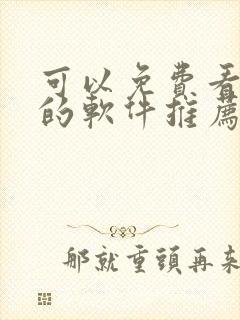 可以免費看
的軟件推薦
那就重頭再來